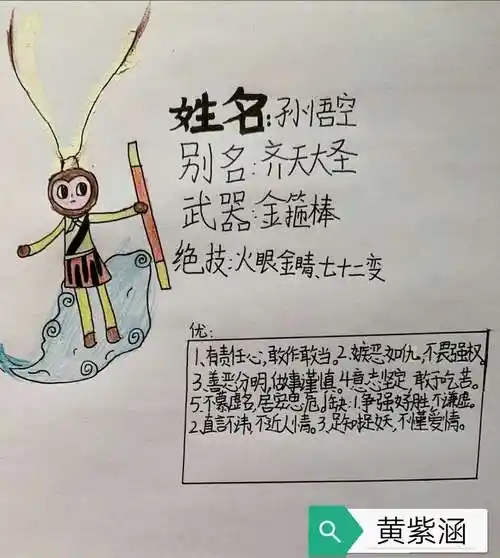 姓名:孙悟空
别名:齐天大圣
武器:金箍棒
绝技:火眼金睛、七十二变
优:
1、有责任心,敢作敢当。2、嫉恶如仇,不畏强权。
3、善恶分明,做事谨慎。4、意志坚定,敢于吃苦。
5、不慕虚名,居安思危。缺:1、争强好胜,不谦虚。
2、直言不讳,不近人情。3、只知捉妖,不懂爱情。
黄紫涵